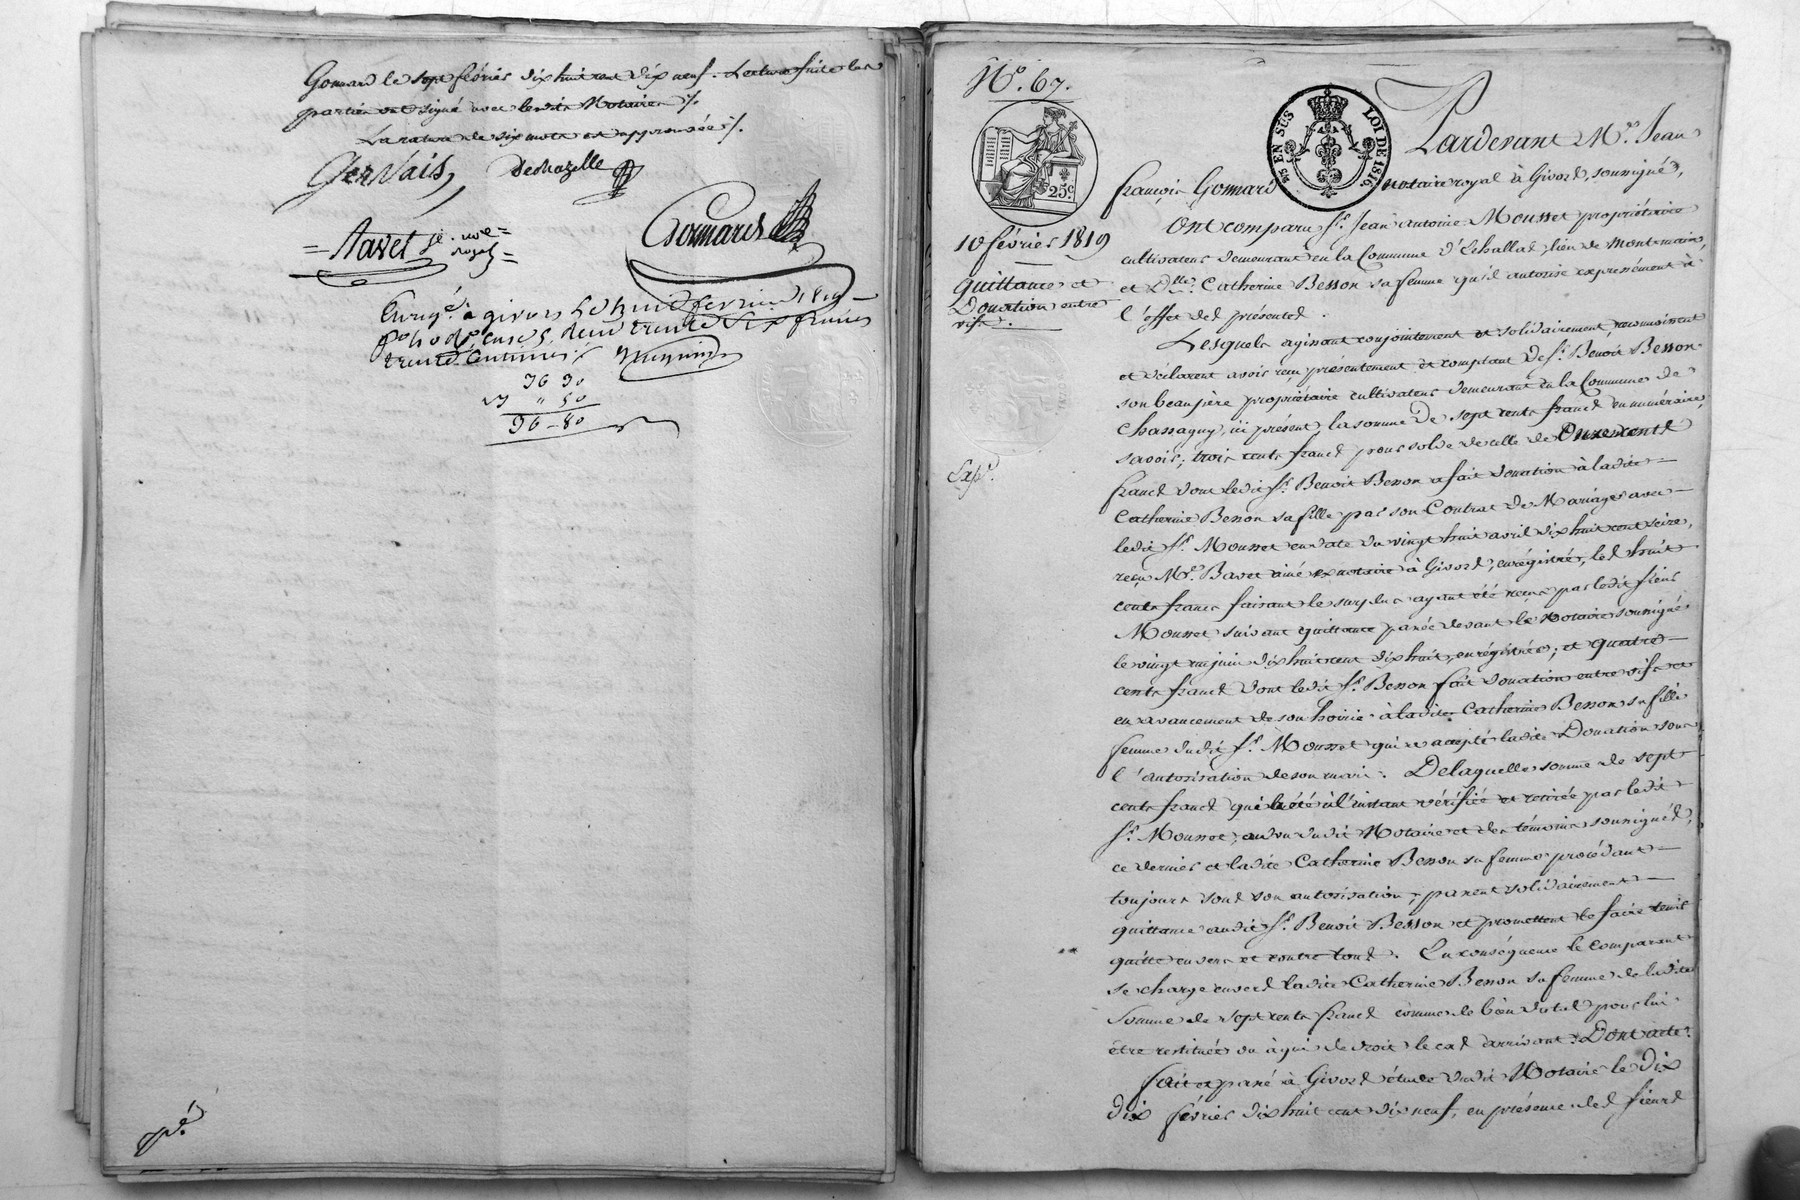 Gomard le sept février dix huit cent dix neuf. Lecture faite les
parties ont signé avec lesdits Notaires ./.
La rature de six mots est approuvée ./.
Gervais, deshazelle
= Navet je. nre =
royal =
Gomard
Enregé. à givors le huit février 1819
fo. Ro. case 5. reçu trente six francs
trente centimes
36 30
" 50
36 - 80
No. 67.
25c.
EN SUS
LOI DE 1816
Pardevant Me. Jean
françois Gomard notaire royal à Givors, soussigné,
10 février 1819
Quittance et
Donation entre
vifs.
Ont comparu Sr. Jean antoine Mousset propriétaire
cultivateur demeurant en la Commune d'Echallas, lieu de Montmain,
et Dlle. Catherine Besson sa femme qu'il autorise expressément à
l'effet des présentes.
Lesquels agissant conjointement et solidairement, reconnoissent
et déclarent avoir reçu présentement et comptant de Sr. Benoit Besson
son beaupère propriétaire cultivateur demeurant en la Commune de
Chassagny, ici présent, la somme de sept cents francs en numéraire,
savoir; trois cents francs pour solde de celle de Onze cents
Exp.
francs dont ledit Sr. Benoit Besson a fait donation à ladite
Catherine Besson sa fille par son Contrat de Mariage avec
ledit Sr. Mousset en date du vingt huit avril dix huit cent seize,
reçu Me. Bavet ainé ex notaire à Givors, enrégistré, les huit
cents francs faisant le surplus ayant été reçus par ledit sieur
Mousset suivant quittance passée devant le Notaire soussigné
le vingt un juin dix huit cent dix huit, enrégistrée; et quatre
cents francs dont ledit Sr. Besson fait donation entre vifs et
en avancement de son hoirie à ladite Catherine Besson sa fille
femme dudit Sr. Mousset qui a accepté ladite Donation sous
l'autorisation de son mari. De laquelle somme de sept
cents francs qui a été à l'instant vérifiée et retirée par ledit
Sr. Mousset, au vu dudit Notaire et des témoins soussignés,
ce dernier et ladite Catherine Besson sa femme procédant
toujours sous son autorisation, passent solidairement
quittance audit Sr. Benoit Besson et promettent le faire tenir
quitte envers et contre tous. En conséquence le comparant
se charge envers ladite Catherine Besson sa femme de ladite
Somme de sept cents francs comme de bien dotal pour lui
être restituée ou à qui de droit le cas arrivant. Dont acte.
fait et passé à Givors étude dudit Notaire le dix
dix février dix huit cent dix neuf, en présence des sieurs